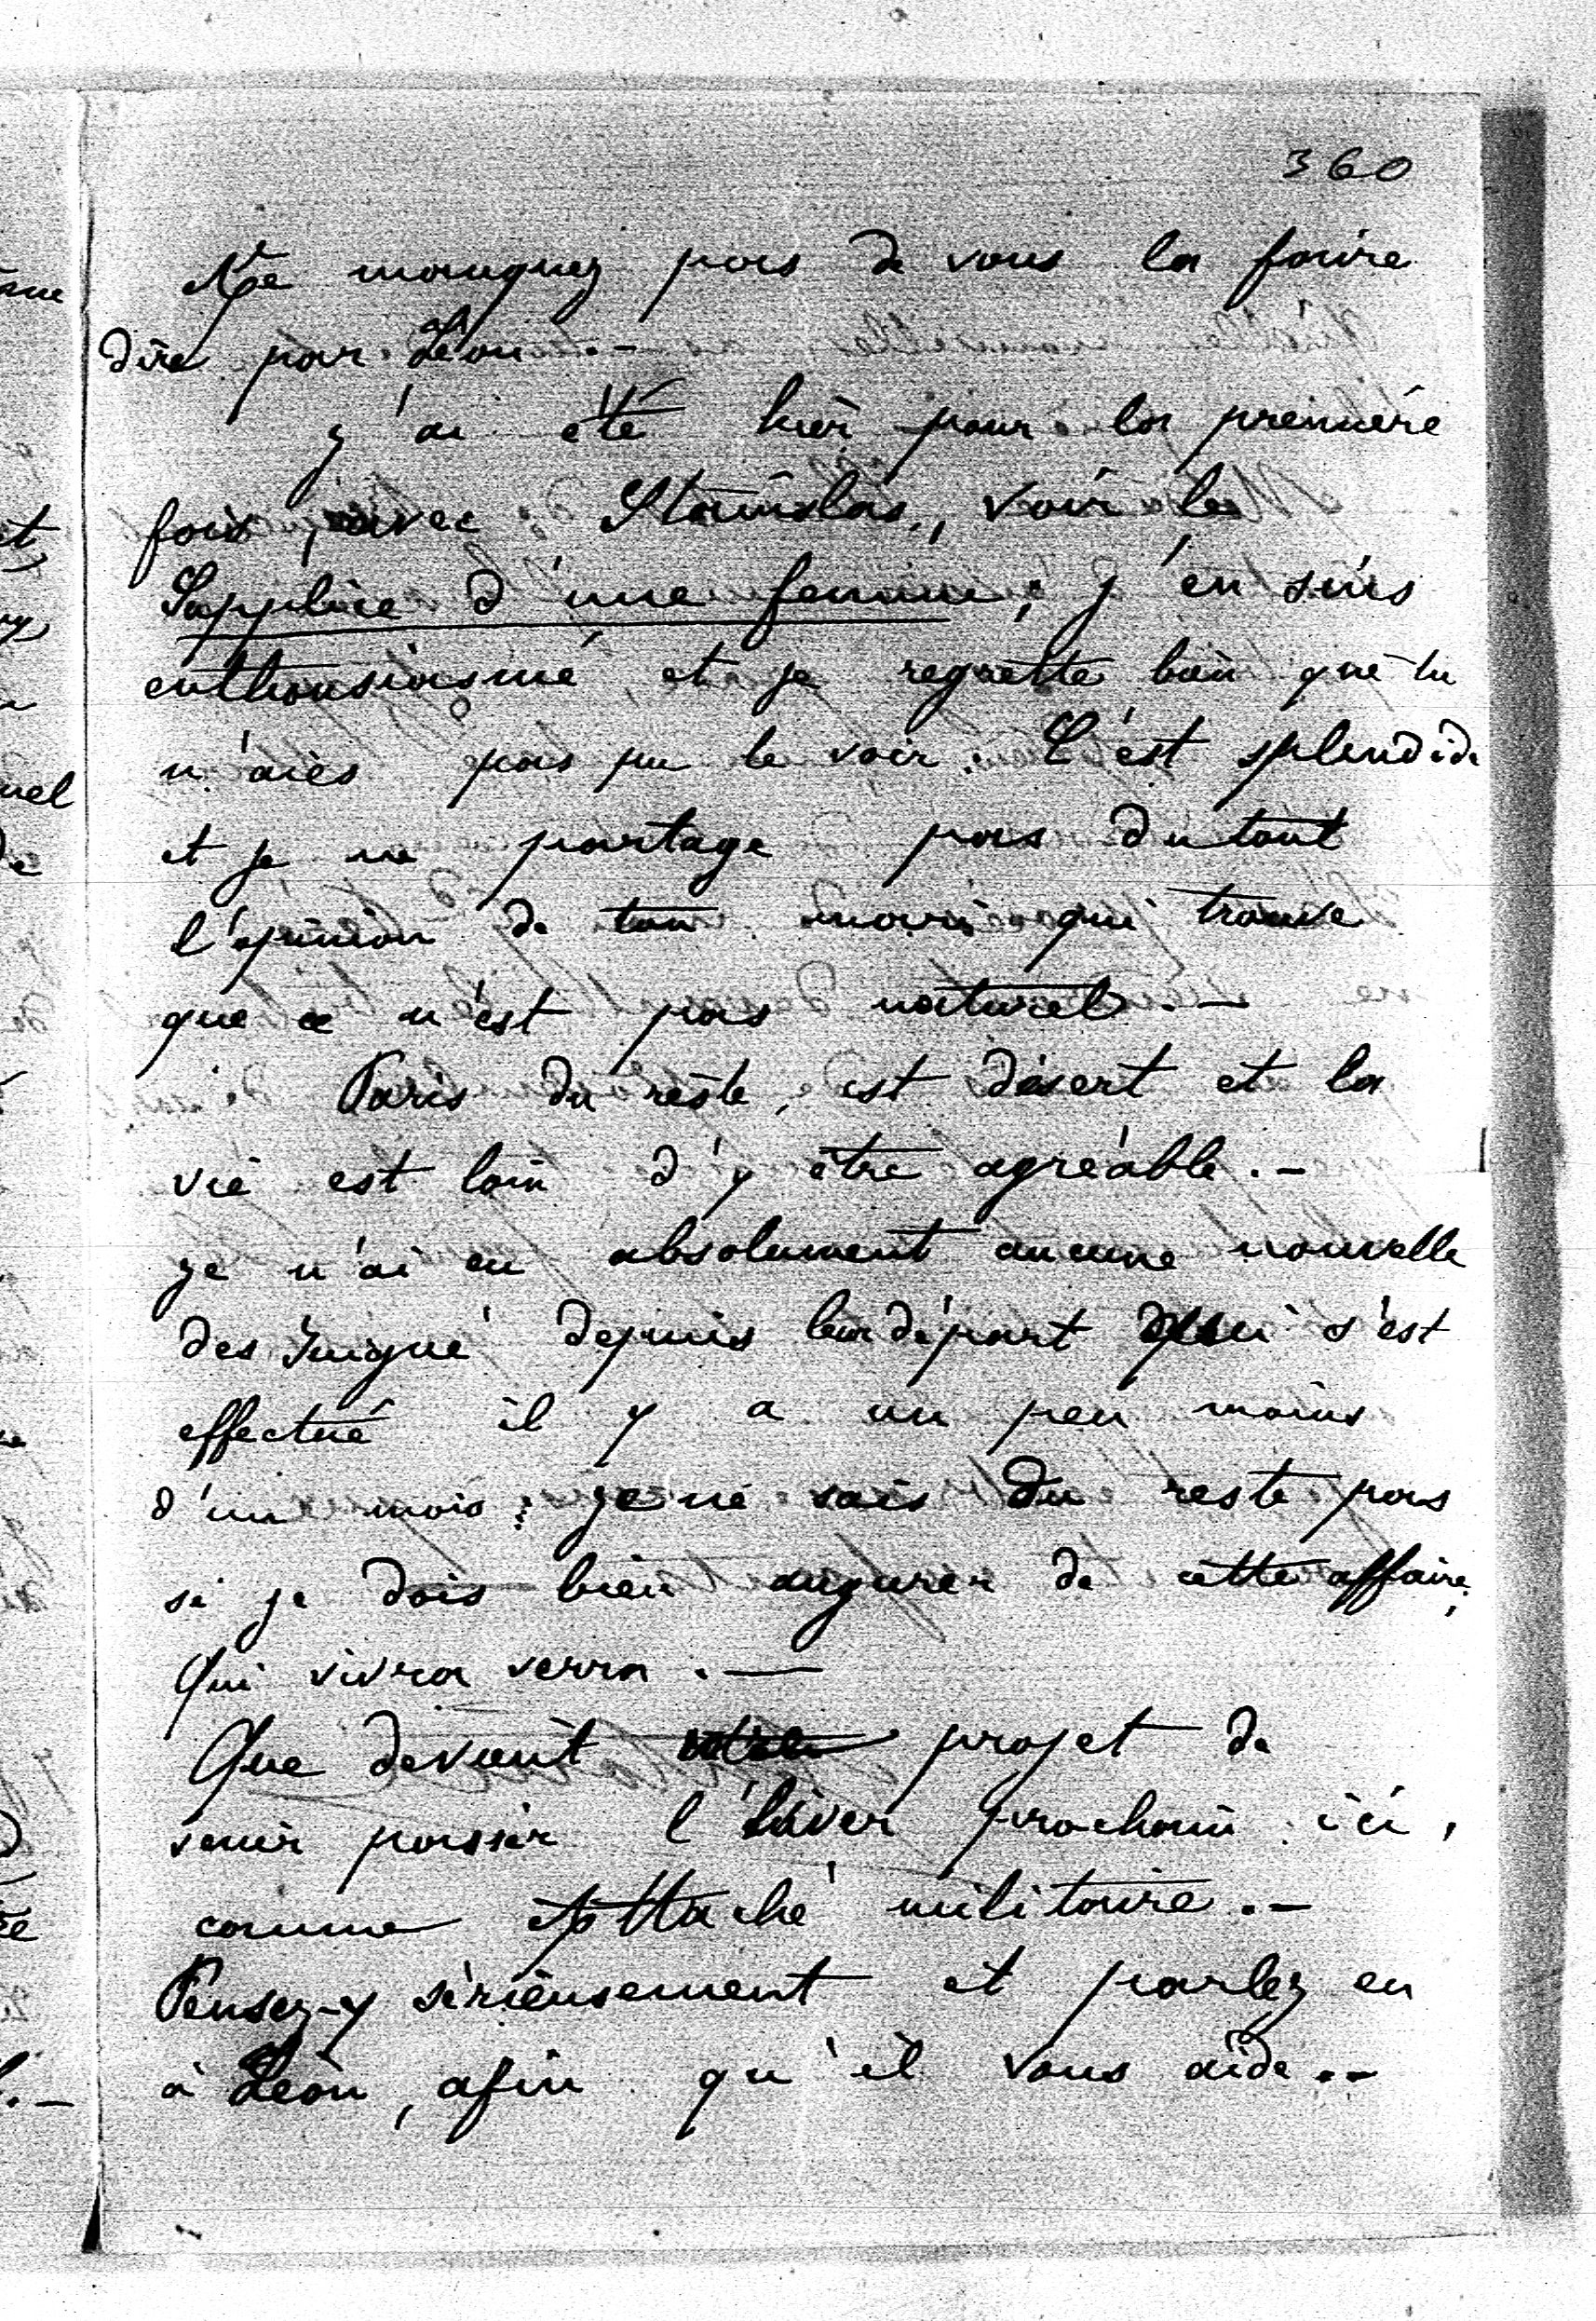 360
Ne manquez pas de vous la faire
dire par Léon. —
J'ai été hier pour la première
fois, avec Stanislas, voir le
Supplice d'une femme; j'en suis
enthousiasmé et je regrette bien que tu
n'aies pas pu le voir. C'est splendide
et je ne partage pas du tout
l'opinion de ton mari qui trouve
que ce n'est pas naturel. —
Paris du reste, est désert et la
vie est loin d'y être agréable. —
Je n'ai eu absolument aucune nouvelle
des depuis leur départ qui s'est
effectué il y a un peu moins
d'un mois; je ne sais du reste pas
si je dois bien augurer de cette affaire,
Qui vivra verra. —
Que devient votre projet de
venir passer l'hiver prochain ici,
comme Attaché militaire. —
Pensez-y sérieusement et parlez en
à Léon, afin qu'il vous aide. —